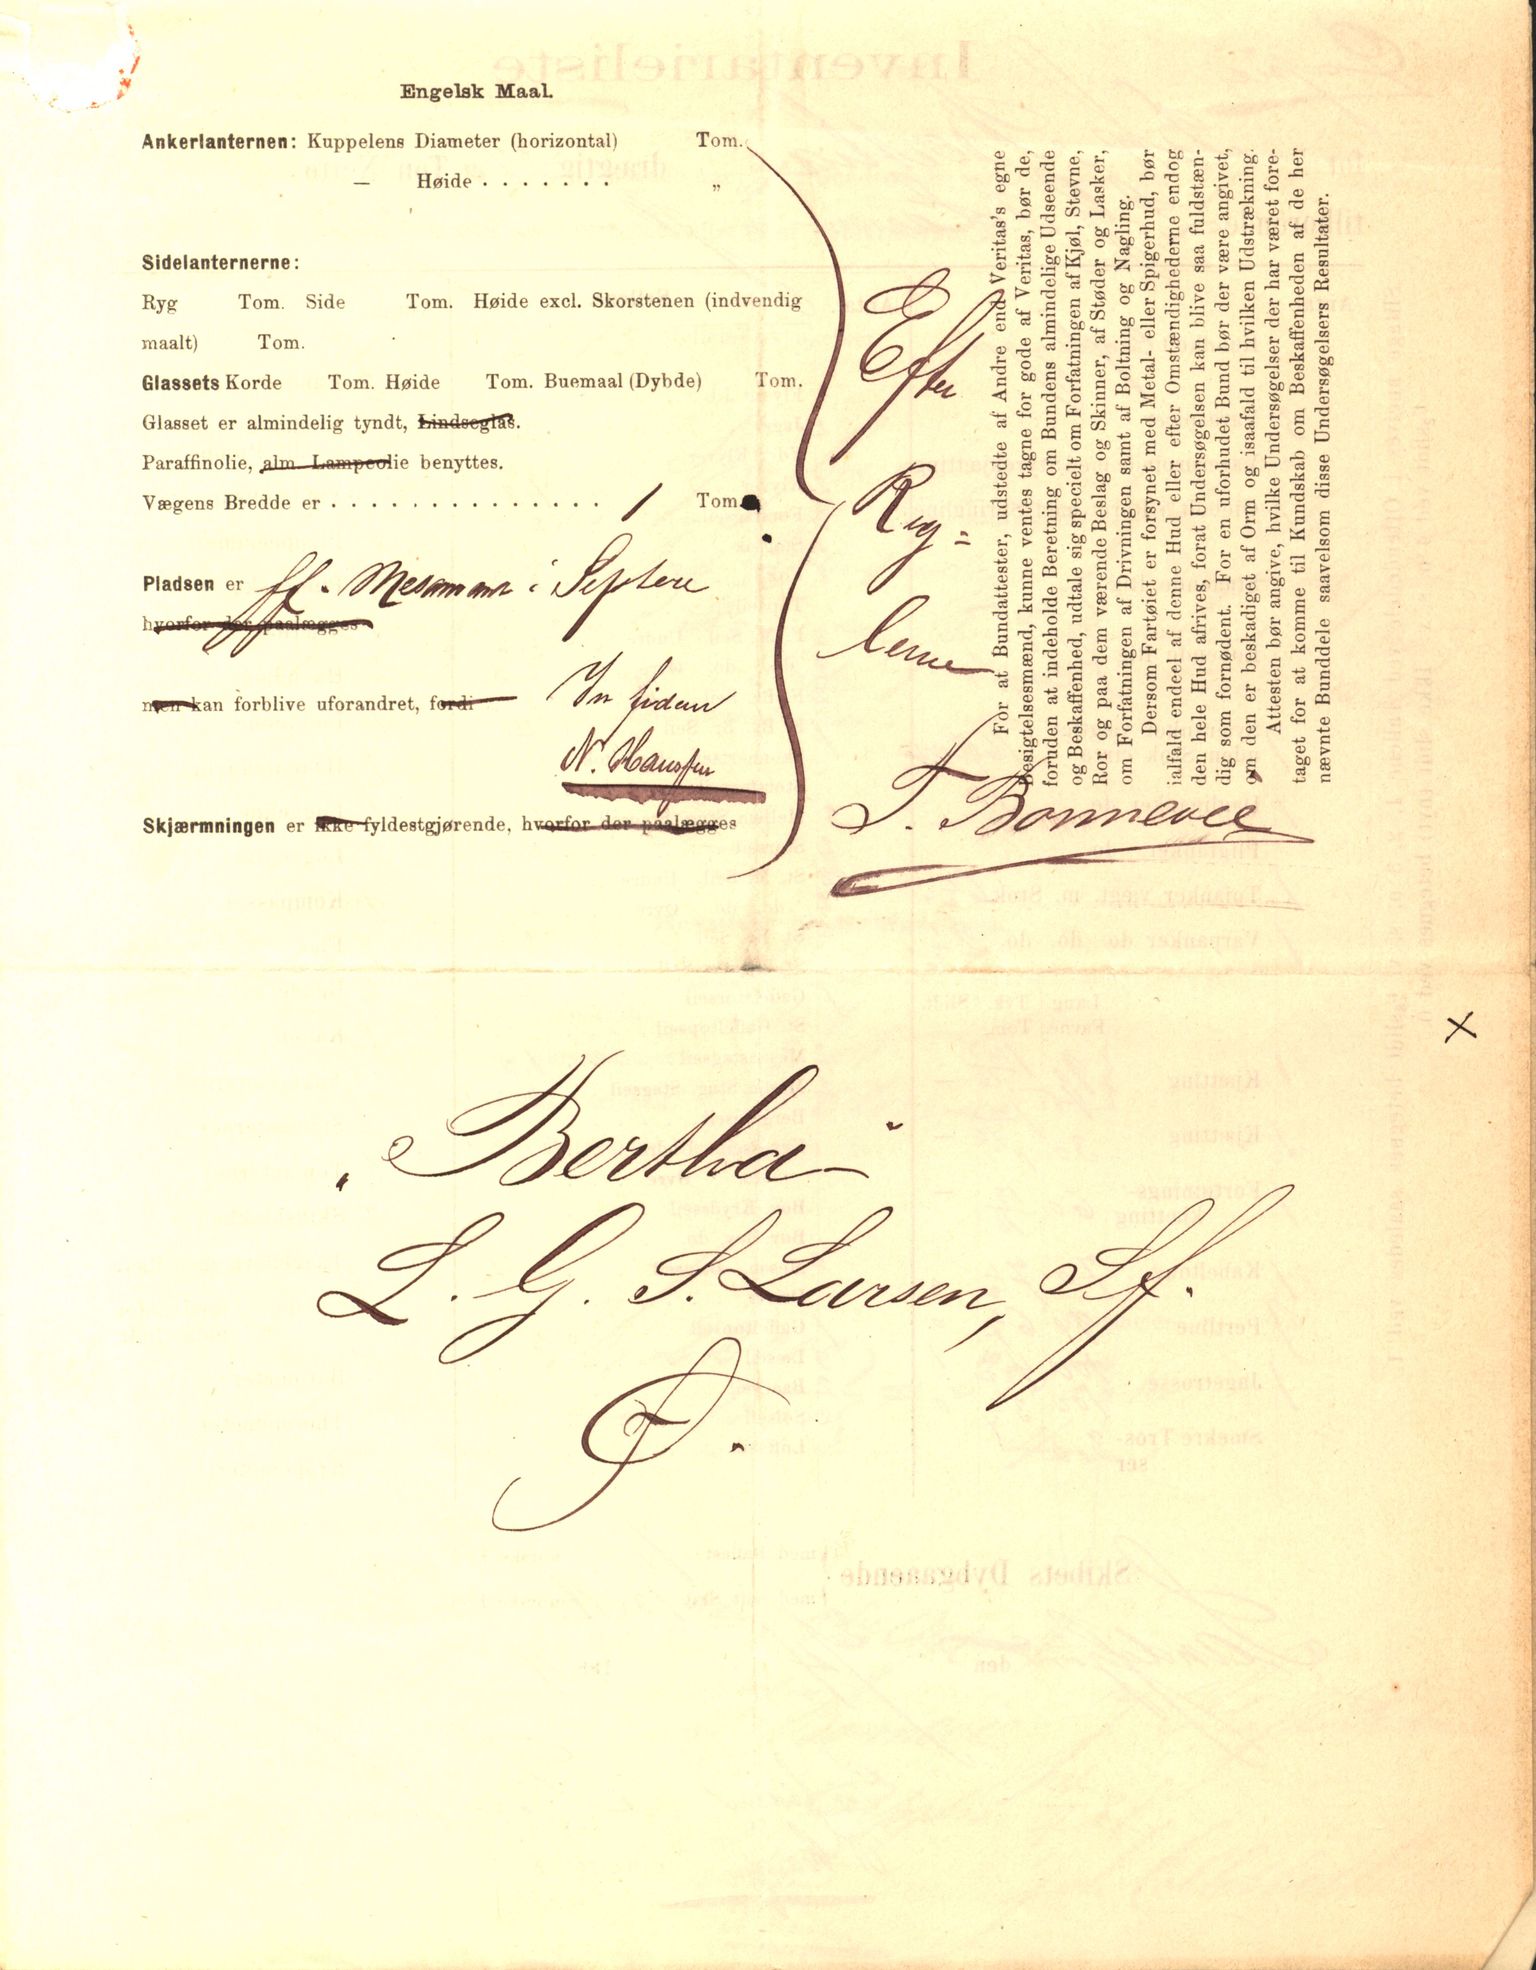 Engelsk Maal.
Ankerlanternen: Kuppelens Diameter (horizontal) Tom.
— Høide . . . . . . . „
Sidelanternerne:
Ryg Tom. Side Tom. Høide excl. Skorstenen (indvendig
maalt) Tom.
Glassets Korde Tom. Høide Tom. Buemaal (Dybde) Tom.
Glasset er almindelig tyndt, Lindseglas.
Paraffinolie, alm. Lampeolie benyttes.
Vægens Bredde er . . . . . . . . . . . . . . 1 Tom.
Pladsen er ff. Mesanmar i
hvorfor der paalægges
men kan forblive uforandret, fordi
In fidem
N. Hansen
Skjærmningen er ikke fyldestgjørende, hvorfor der paalægges
Efter
Reg=
lerne
T. Bonnevie
For at Bundattester, udstedte af Andre end Veritas's egne
Besigtelsesmænd, kunne ventes tagne for gode af Veritas, bør de,
foruden at indeholde Beretning om Bundens almindelige Udseende
og Beskaffenhed, udtale sig specielt om Forfatningen af Kjøl, Stevne,
Ror og paa dem værende Beslag og Skinner, af Støder og Lasker,
om Forfatningen af Drivningen samt af Boltning og Nagling.
Dersom Fartøiet er forsynet med Metal- eller Spigerhud, bør
ialfald endeel af denne Hud eller efter Omstændighederne endog
den hele Hud afrives, forat Undersøgelsen kan blive saa fuldstæn-
dig som fornødent. For en uforhudet Bund bør der være angivet,
om den er beskadiget af Orm og isaafald til hvilken Udstrækning.
Attesten bør angive, hvilke Undersøgelser der har været fore-
taget for at komme til Kundskab om Beskaffenheden af de her
nævnte Bunddele saavelsom disse Undersøgelsers Resultater.
X
„Bertha"
L. G. S. Larsen, Sf.